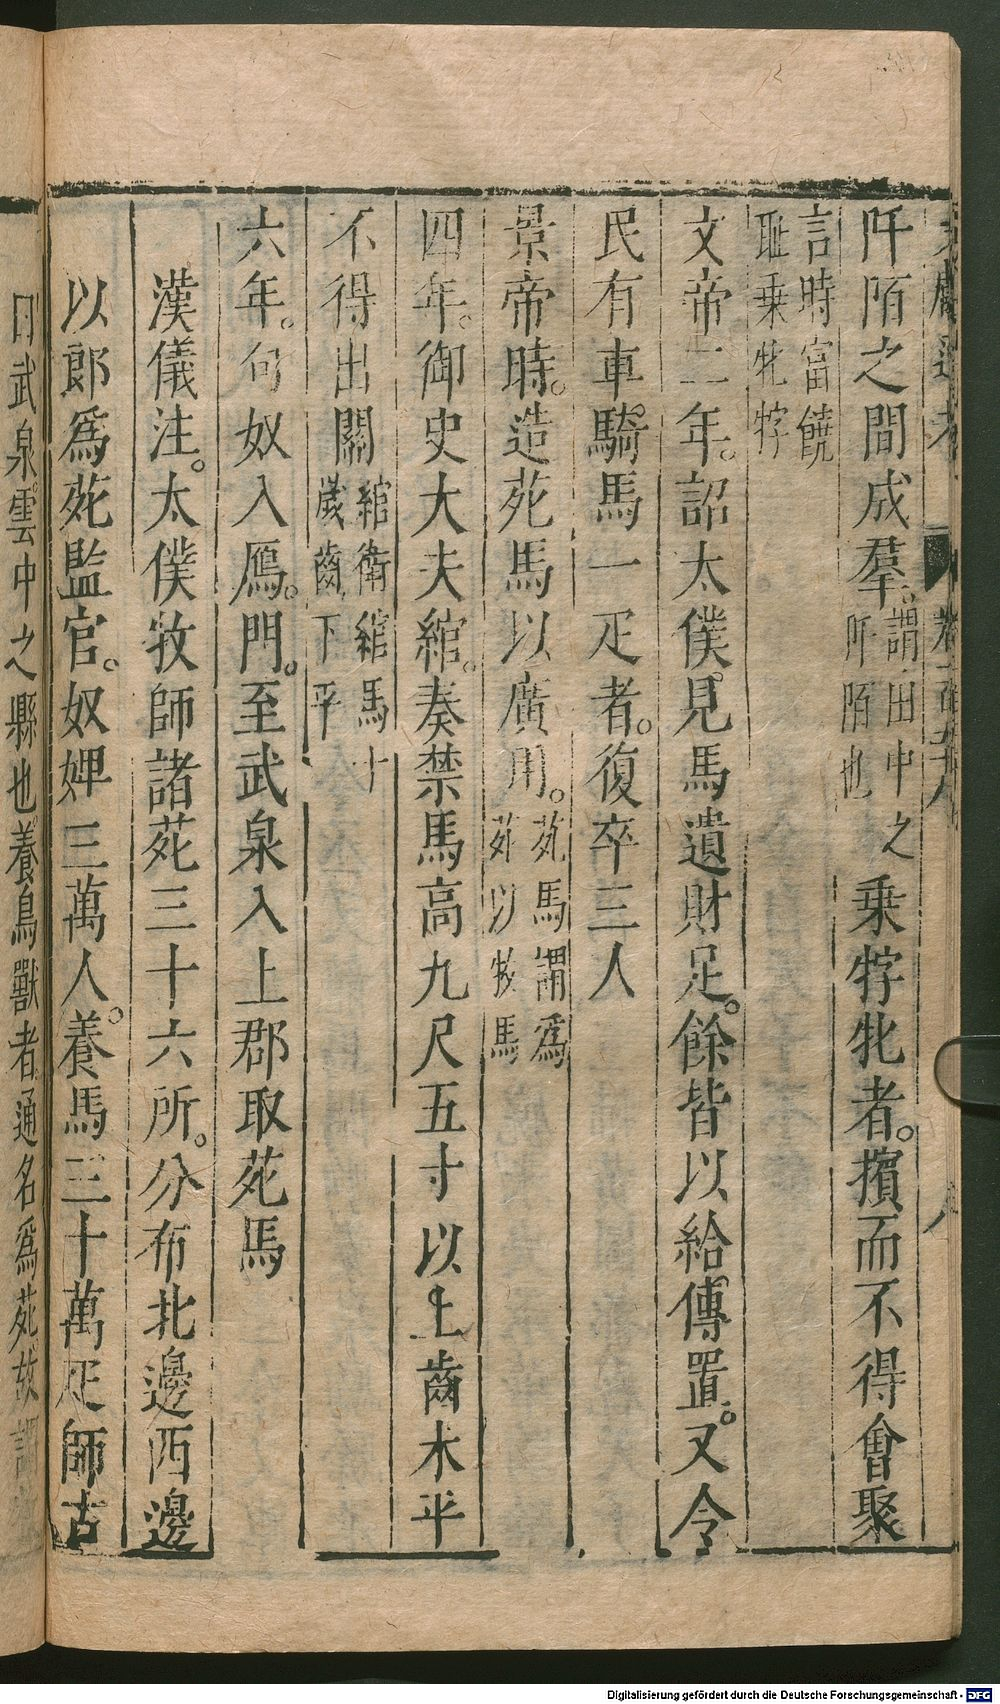 阡陌之間成羣謂田中之阡陌也乘牸牝者。擯而不得會聚
言時富饒恥乗牝牸
文帝二年。詔太僕。見馬遺財足。餘皆以給傳置。又令
民有車騎馬一疋者。復卒三人
景帝時。造苑馬以廣用。苑馬謂爲苑以牧馬
四年。御史大夫綰。奏禁馬高九尺五寸以上齒木平
不得出關綰衛綰馬十歲齒下平
六年。匈奴入鴈。門。至武泉入上郡取苑馬
漢儀注。太僕牧師諸苑三十六所。分布北邊西邊
以郎爲苑監官。奴婢三萬人。養馬三十萬疋師古
曰武泉。雲中之縣也。養鳥獸者通名爲苑故謂
卷一百五十八
八
Digitalisierung gefördert durch die Deutsche Forschungsgemeinschaft - DFG